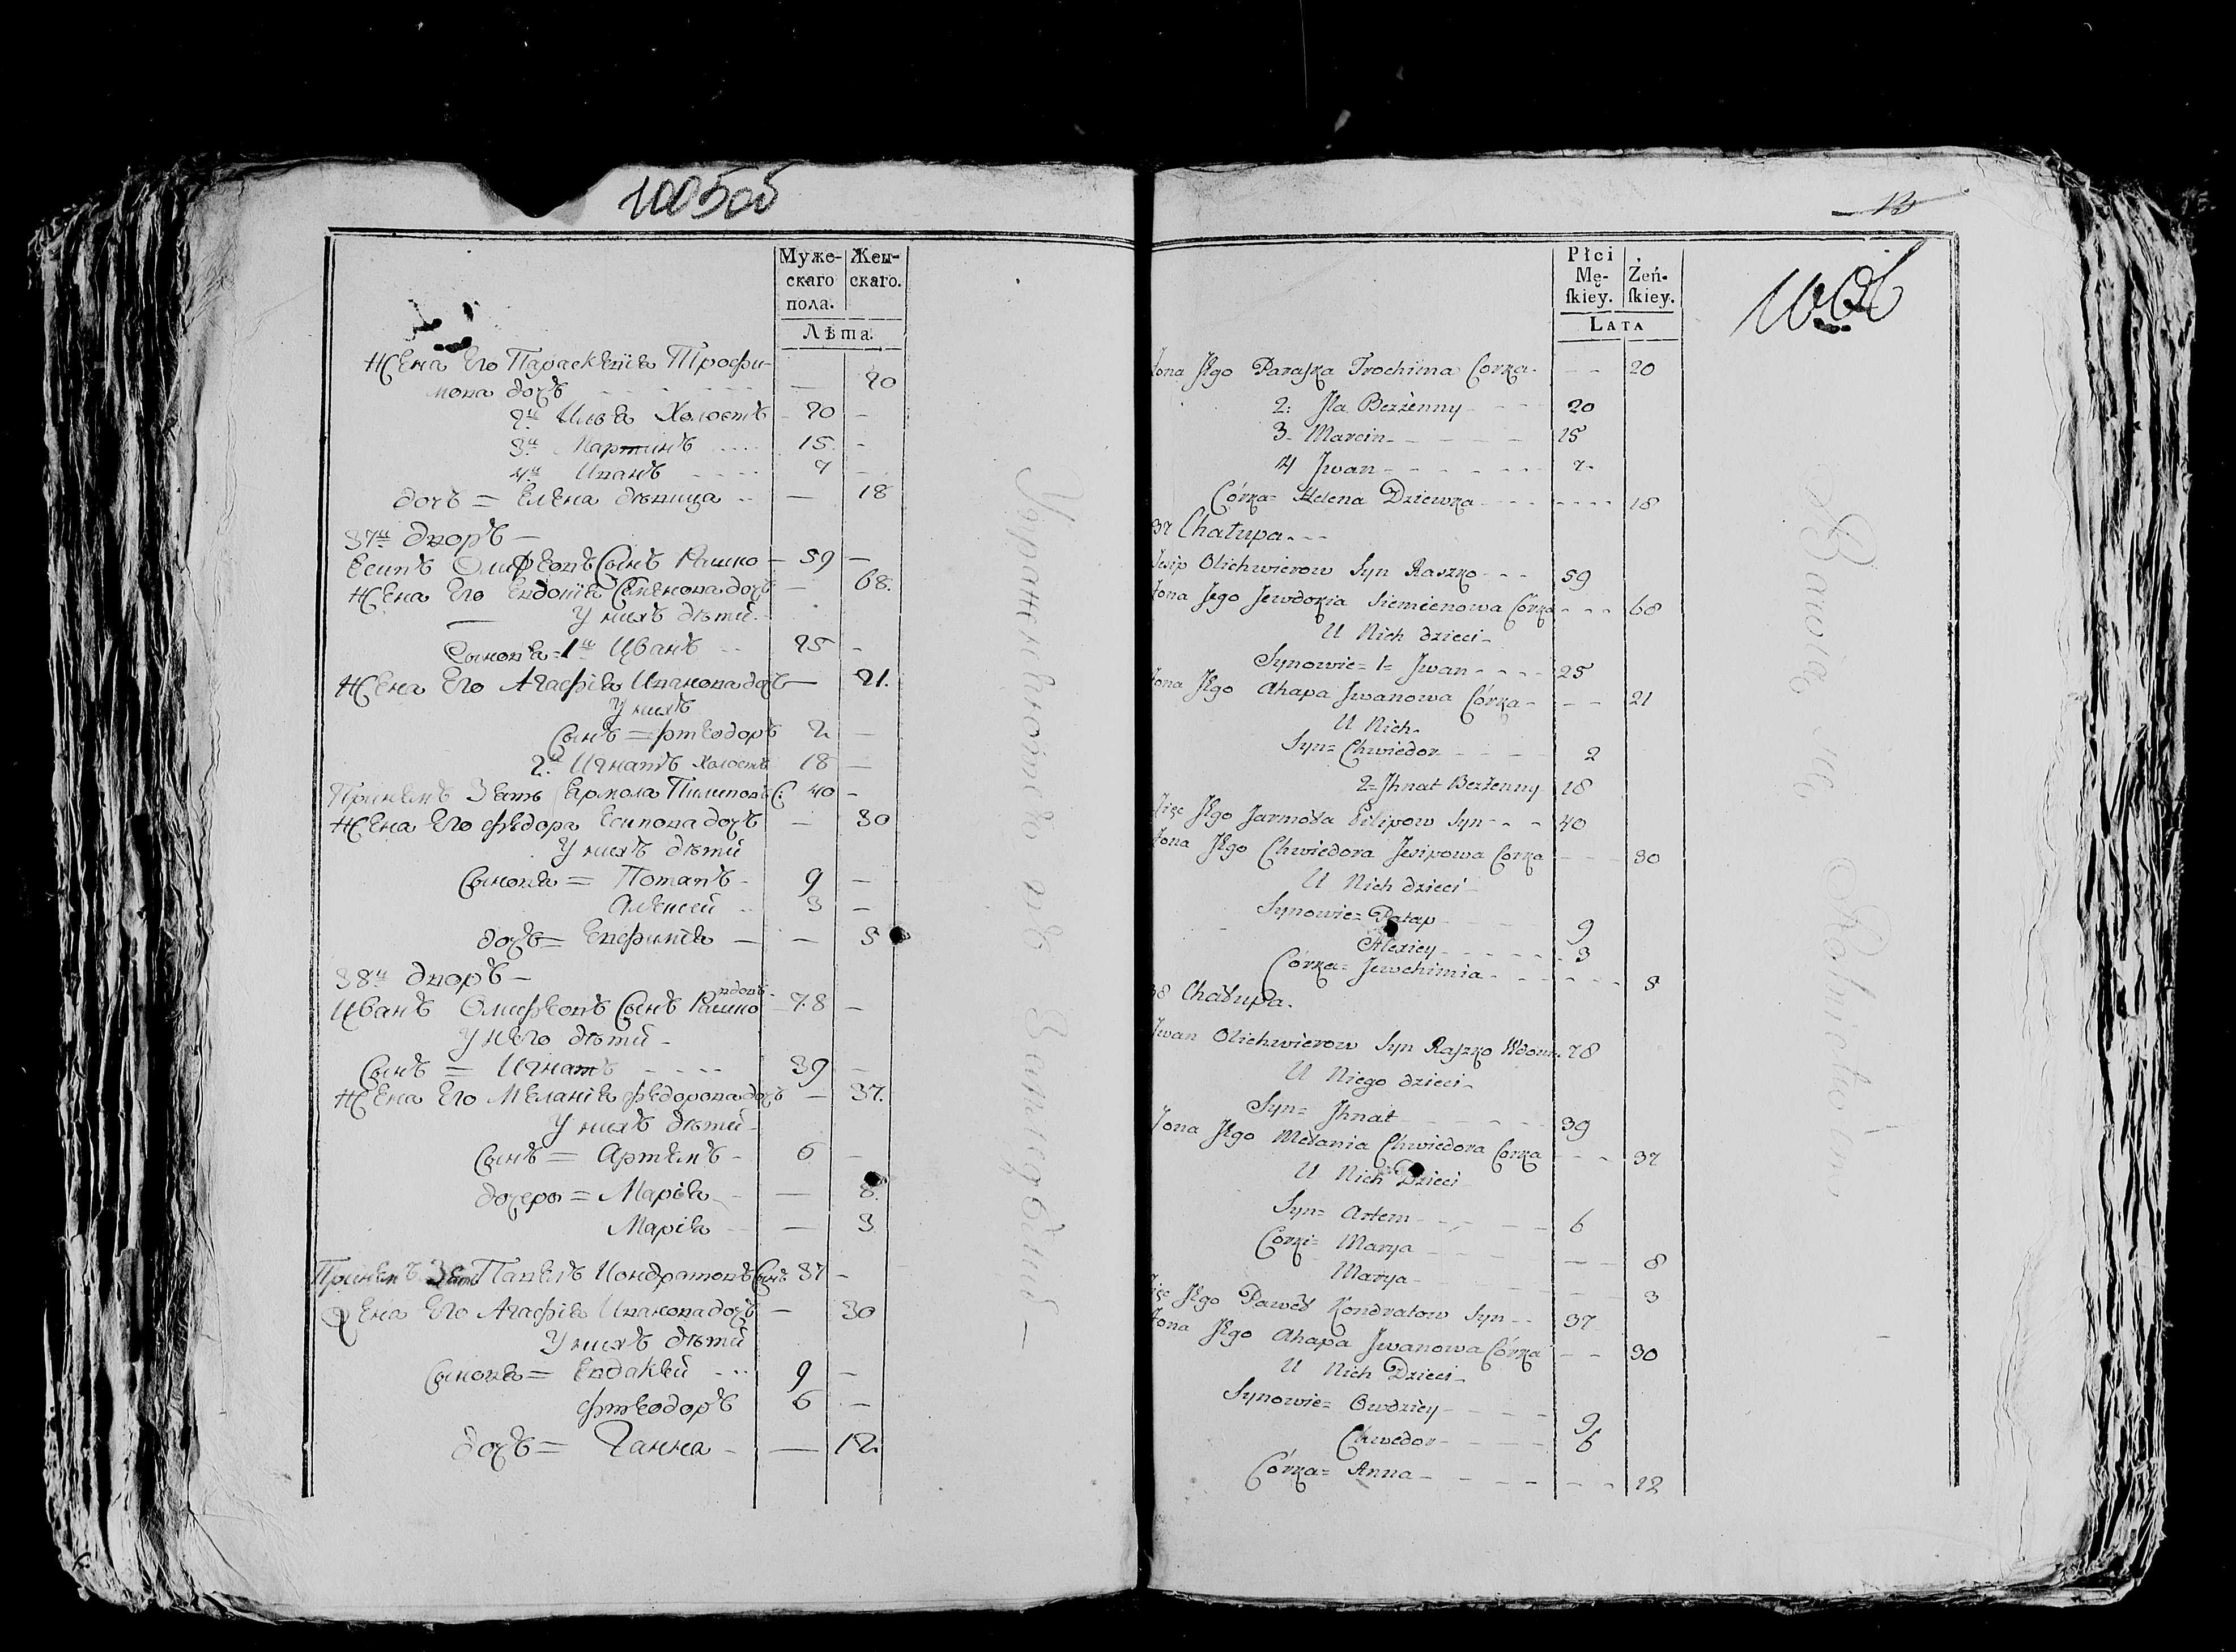 1005об
Муже-
скаго
пола.
Жен-
скаго.
Лѣта.
Жена Его Параскевiя Трофи-
мова дочь — 20
2й Илья Холостъ - 20 -
3й Мартинъ 15 -
4й Иванъ 7 -
дочь = Елена дѣвица — 18
37й дворъ —
Есипъ Олифѣровъ Сынъ Рашко — 59 —
Жена Его Евдокiя Семенова дочь — 68.
У нихъ дѣти
Сыновья = 1й Иванъ 25 -
Жена Его Агафiя Иванова дочь — 21.
У нихъ
Сынъ = Фтеодоръ 2 —
2й Игнатъ Холостъ 18 —
Приемъ Зять Ермола Пилиповъ С: 40 -
Жена Его Федора Есипова дочь — 30
У нихъ дѣти
Сыновья = Потапъ - 9 —
Алексей 3 —
дочь = Евфимiя — — 5
38й дворъ —
вдовъ
Иванъ Олифѣровъ Сынъ Рашко 78 —
У него дѣти -
Сынъ = Игнатъ 39 -
Жена Его Меланiя Федорова дочь — 37.
У нихъ дѣти -
Сынъ = Артемъ - 6 —
дочери = Марiя — 8.
Марiя — 3
Приемъ Зять Павелъ Кондратовъ Сынъ 37 -
Жена Его Агафiя Иванова дочь — 30
У нихъ дѣти
Сыновья = Евдакей 9 —
Фтеодоръ 6 —
дочь = Ганна - — 12.
13
1006
Płci
Mę-
ſkiey.
Żeń-
ſkiey.
LATA
Żona Jego Paraszka Trochima Corka - - - 20
2: Jla Bezżenny 20
3- Marcin 15
4 Jwan 7-
Córka= Helena Dziewka 18
37 Chałupa
Jesip Olichwierow Syn Raszko - - - 59
Żona Jego Jewdokia Siemienowa Córka - - - 68
U Nich dzieci -
Synowie= 1= Jwan - - - - 25
Żona Jego Ahapa Jwanowa Córka - - - 21
U Nich -
Syn= Chwiedor 2
2= Jhnat Bezżenny 18
Zięć Jego Jarmoła Pilipow Syn - - - 40
Żona Jego Chwiedora Jesipowa Corka 30
U Nich dzieci -
Synowie= Patap 9
Alexiey 3
Córka= Jewchimia 5
38 Chałupa.
Jwan Olichwierow Syn Raszko Wdow. 78
U Niego dzieci -
Syn= Jhnat 39
Żona Jego Mełania Chwiedora Corka - - - 37
U Nich Dzieci -
Syn= Artem 6
Corki= Marya 8
Marya 3
Zięć Jego Paweł Kondratow Syn - - 37
Żona Jego Ahapa Jwanowa Córka - - 30
U Nich Dzieci -
Synowie= Owdziey 9
Chwedor 6
Córka= Anna 12